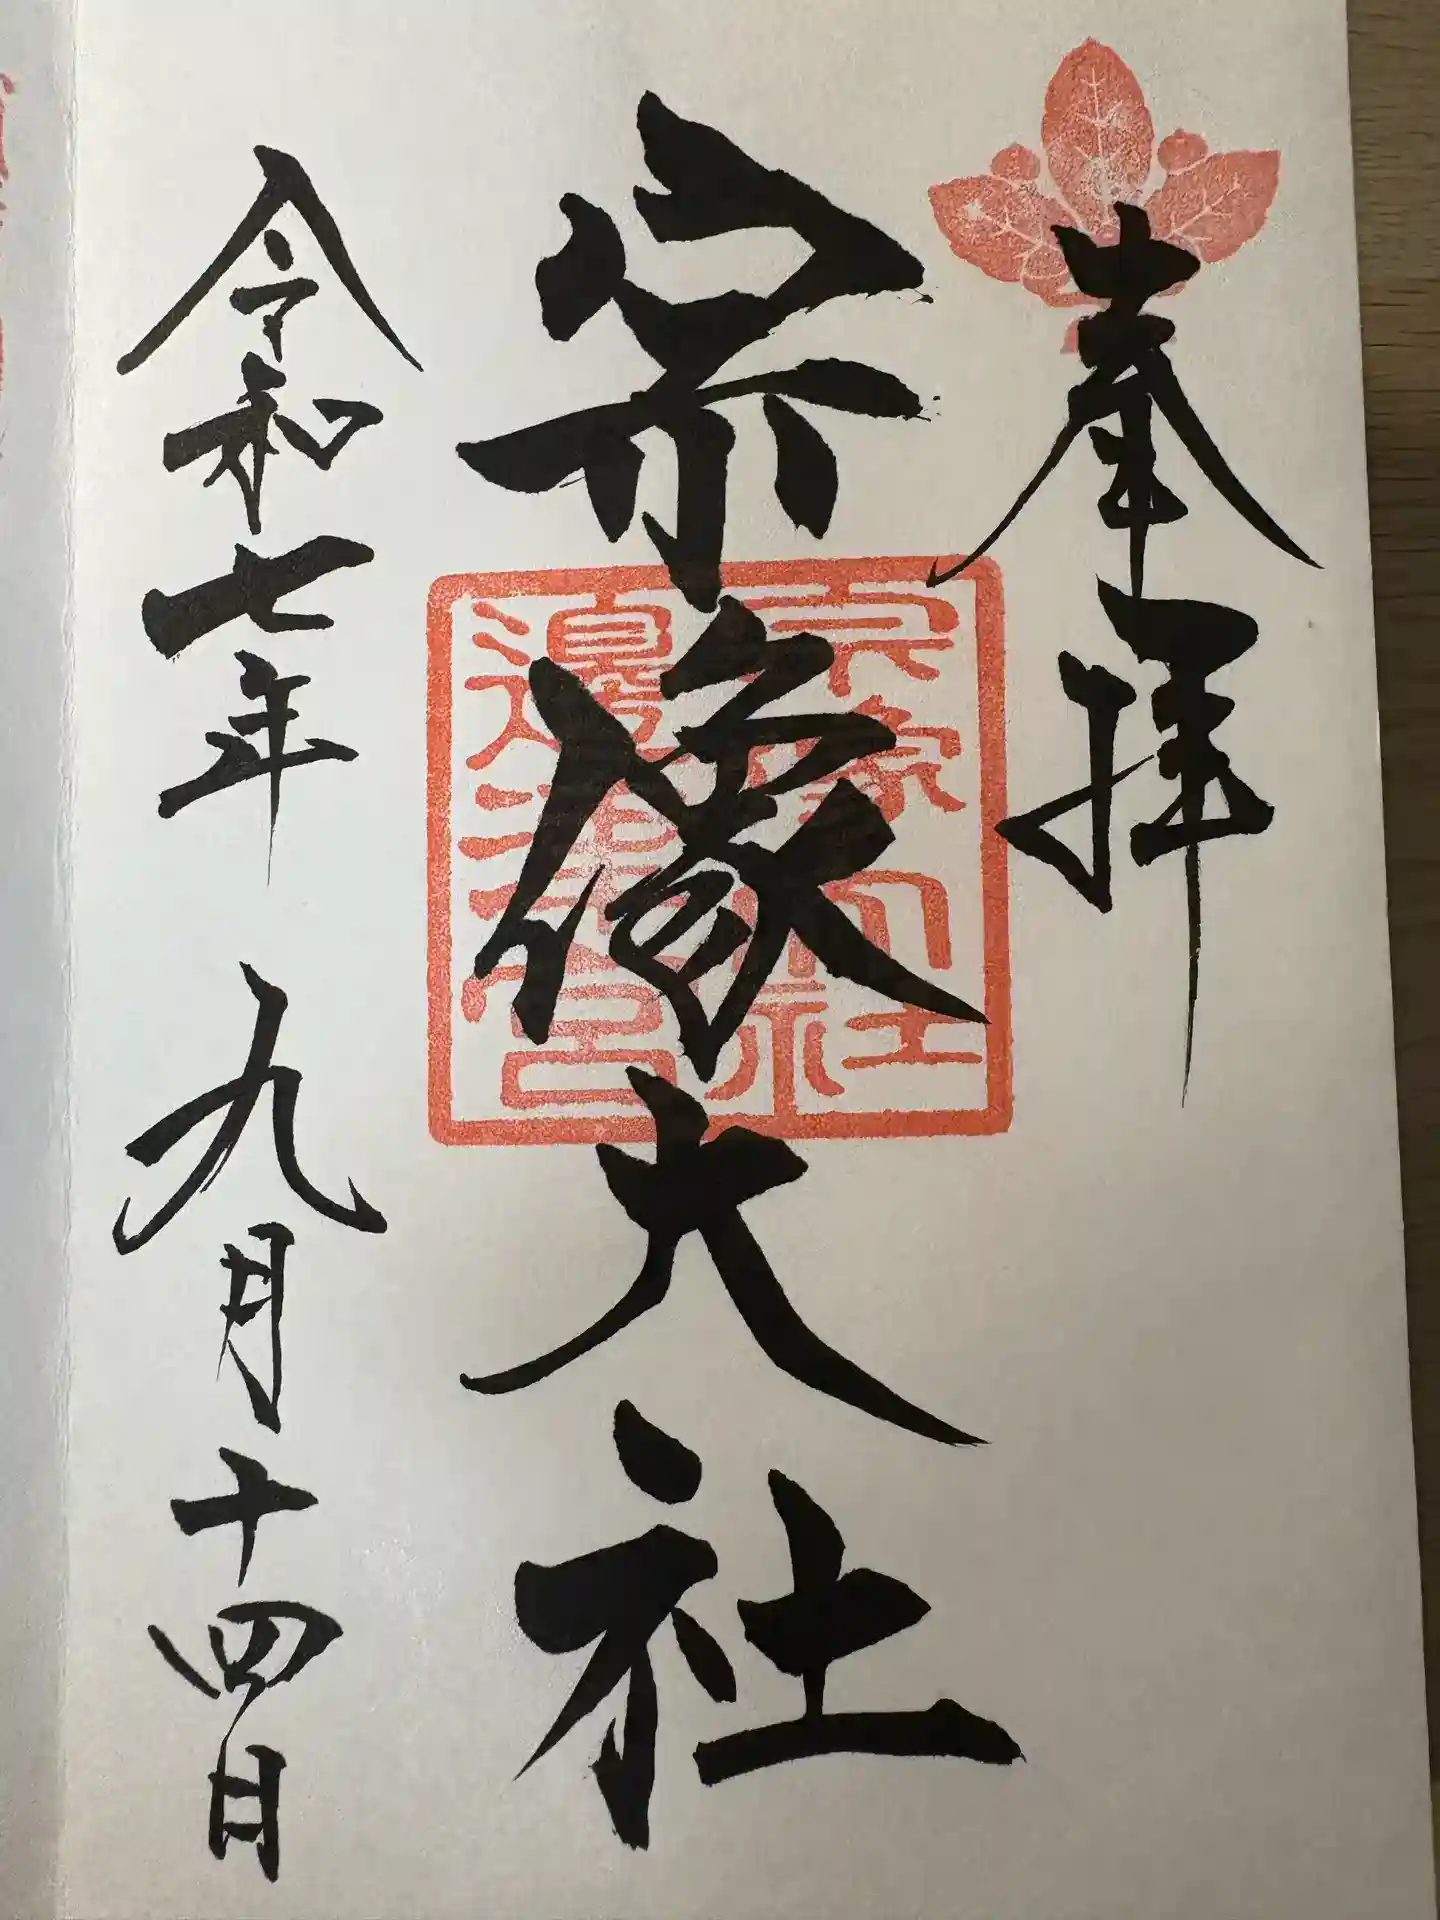 奉拝
宗像大社
宗像大社
邊津宮
令和七年 九月十四日